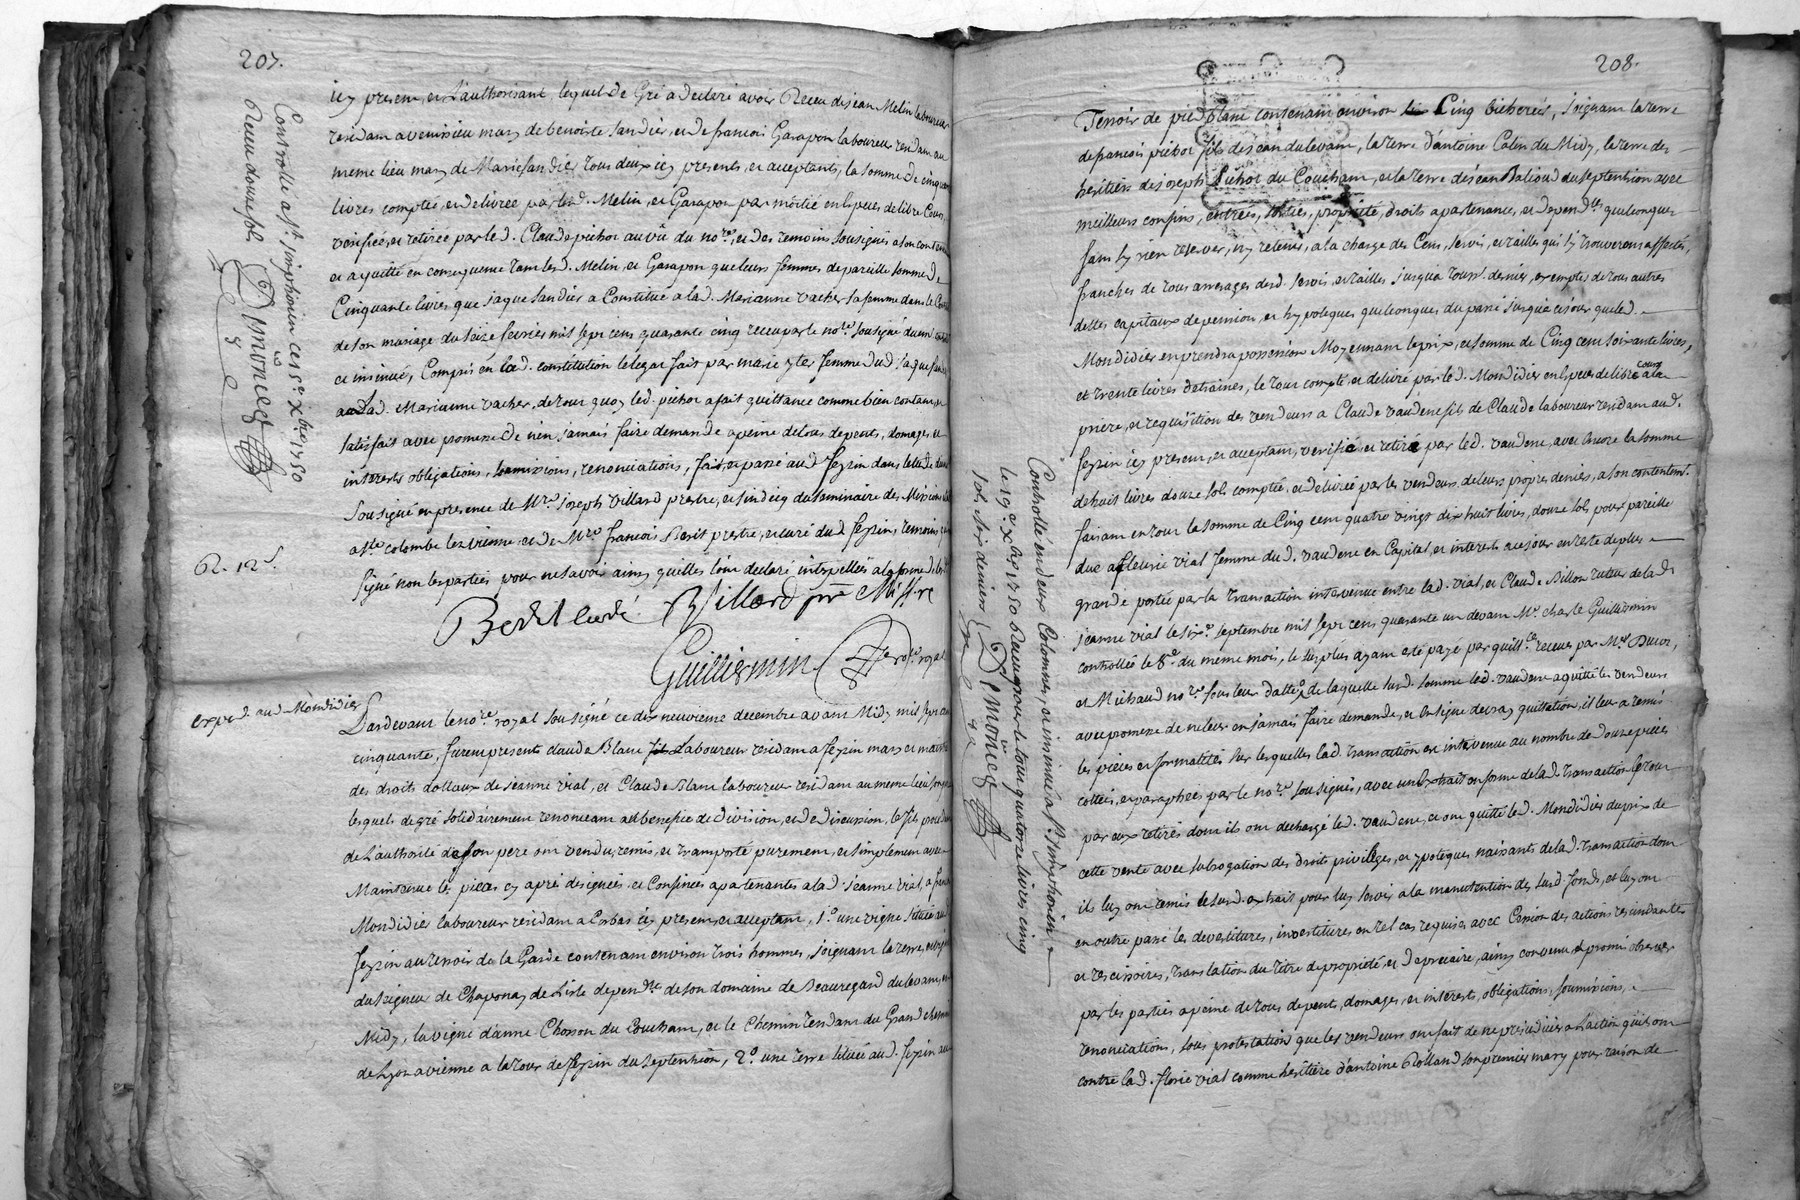 207.
icy present, et L'authorisant, lequel de Gré a declaré avoir Receu de jean Melin laboureur
residam a venissieu mary de benoiste Sandier, et de francois Garapon laboureur residam au
meme lieu mary de Marie Sandier tous deux icy presents, et acceptants, la somme de cinquante
livres comptée, et delivrée par led. Melin, et Garapon par moitié en Especes de libre Cours,
verifiée, et retirée par led. Claude pichot au vû du no.re, et des temoins sousignés a son contentement
et a quitté en consequence tam led. Melin, et Garapon que leurs femmes de pareille somme de
Cinquante livres, que jaque Sandier a Constitué a lad. Marianne vacher sa femme dans le Contrat
de son mariage du seize fevrier mil sept cens quarante cinq receu par le no.re sousigné dument controllé
et insinué, Compris en lad. constitution le legat fait par marie femme dud. jaque Sandier
a Lad. Marianne vacher, de tout quoy led. pichot a fait quittance comme bien contam, et
satisfait avec promesse de n'en jamais faire demande a peine de tous depents, domages, et
interests obligations, soumissions, renonciations, fait, et passé aud. feyzin dans l'etude du no.re
sousigné en presence de M.re joseph villard prestre, et sindicq du seminaire des Missions
a S.te colombe lez vienne et de M.re francois Berit prestre, et curé dud. feyzin, temoins
signé non les parties pour ne savoir ainsy quelles l'ont declaré interpellées a la forme
Berit curé Villard ptre Miss.re
Guillermin no.re royal
Controllé a S.t simphorien ce 15.e xbre 1750
Receu douze sols
R. 12 s.
exped. aud. Mondidier
Pardevant le no.re royal sousigné ce dix neuvieme decembre avant Midy mil sept cens
cinquante, furem presents claude Blanc Laboureur residam a feyzin mary et maitre
des droits dottaux de jeanne vial, et Claude Blanc laboureur residam au meme lieu son fils
lesquels de gré solidairement renonceam au benefice de division, et de discussion, le fils procedant
de L'authorité de son pere om vendu, remis, et transporté purement, et simplement avec
Maintenue les pieces cy aprés designées et Confinées apartenantes a lad. jeanne vial, a
Mondidier laboureur residam a Corbas icy present, et acceptam, 1.o une vigne située aud.
feyzin au terroir de la Garde contenam environ trois hommes, joignam la terre,
du seigneur de Chaponay de Lisle depend.te de son domaine de Beauregard du levam, et
Midy, la vigne d'anne Chosson du Couchant, et le Chemin tendam du Grand chemin
de Lyon a vienne a la tour de feyzin du septentrion, 2.o une terre située aud. feyzin au
208.
Terroir de pied blanc contenam environ Cinq bicherées, joignam la terre
de francois pichot fils de jean du levam, la terre d'antoine Colin du Midy, la terre des
heritiers de joseph pichot du Coucham, et la terre de jean Balioud du septentrion avec
meilleurs confins, entrées, sorties, proprieté, droits apartenances, et depend.ces quelconques
sans s'y rien reserver, ny retenir, a la charge des Cens, servis, et tailles qui s'y trouverons affectés,
franches de tous arrerages desd. servis, et tailles jusqua ce jour dernier, exemptes de tous autres
dettes capitaux de pension, et hypoteques quelconques du passé jusqua ce jour que led.
Mondidier en prendra possession Moyennant le prix, et somme de Cinq cent soixante livres,
et trente livres d'etraines, le tout compté, et delivré par led. Mondidier en Especes de libre cours a la
priere, et requisition des vendeurs a Claude vaudene fils de Claude laboureur residam aud.
feyzin icy present, et acceptam, verifié, et retiré par led. vaudene, avec Encore la somme
de huit livres douze sols comptée, et delivrée par les vendeurs de leurs propres deniers, a son contentem.t
faisam en tout la somme de Cinq cent quatre vingt dix huit livres, douze sols pour pareille
due a fleurie vial femme dud. vaudene en Capital, et interests a ce jour en reste de plus
grande portée par la transaction intervenue entre lad. vial, et Claude Billon tuteur de lad.
jeanne vial le six.e septembre mil sept cens quarante un devam M.e charle Guillermin
controllée le 8.e du meme mois, le surplus ayam eté payé par quitt.ce receues par M.es Ducos,
et Michaud no.res sous leur datte, de laquelle susd. somme led. vaudene a quitté les vendeurs
avec promesse de ne leur en jamais faire demande, et en signe de vray quittation, il leur a remis
les pieces et formalités sur lesquelles lad. transaction est intervenue au nombre de douze pieces
cottées, et paraphées par le no.re sousigné, avec un Extrait en forme de lad. transaction le tout
par eux retirés dont ils om dechargé led. vaudene, et om quitté led. Mondidier du prix de
cette vente avec subrogation des droits privileges, et ypoteques naissants de lad. transaction dont
ils luy om remis le susd. extrait pour luy servir a la manutention des susd. fonds, et luy om
en outre passé les devestitures, investitures en tel cas requises avec Cession des actions rescindantes
et rescissoires, translation du titre de proprieté et de precaire, ainsy convenu, et promis observer
par les parties a peine de tous depents, domages, et interests, obligations, soumissions,
renonciations, sous protestation que les vendeurs om fait de ne prejudicier a Laction qu'ils om
contre lad. florie vial comme heritiere d'antoine Rolland son premier mary pour raison de
Controllé en deux Colomnes, et insinué a S.t simphorien
le 19.e xbre 1750 Receu pour le tout quatorze livres cinq
sols six deniers